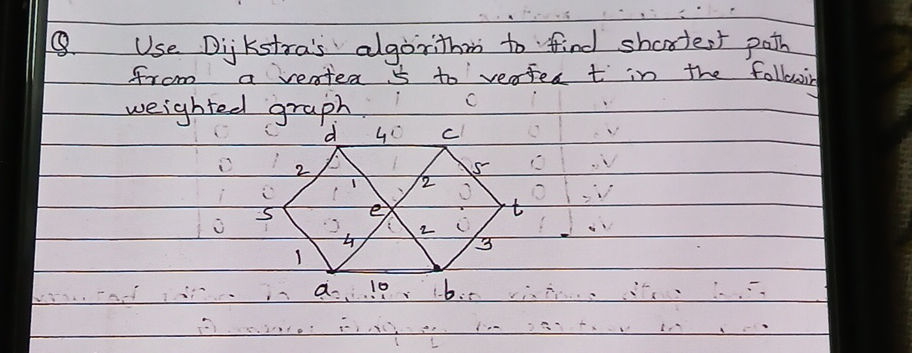 Q. Use Dijkstra's algorithm to find shortest path
from a vertex s to vertex t in the followin
weighted graph
d 40 c
2 5
1 2
s e t
4 2 3
1
a 10 b